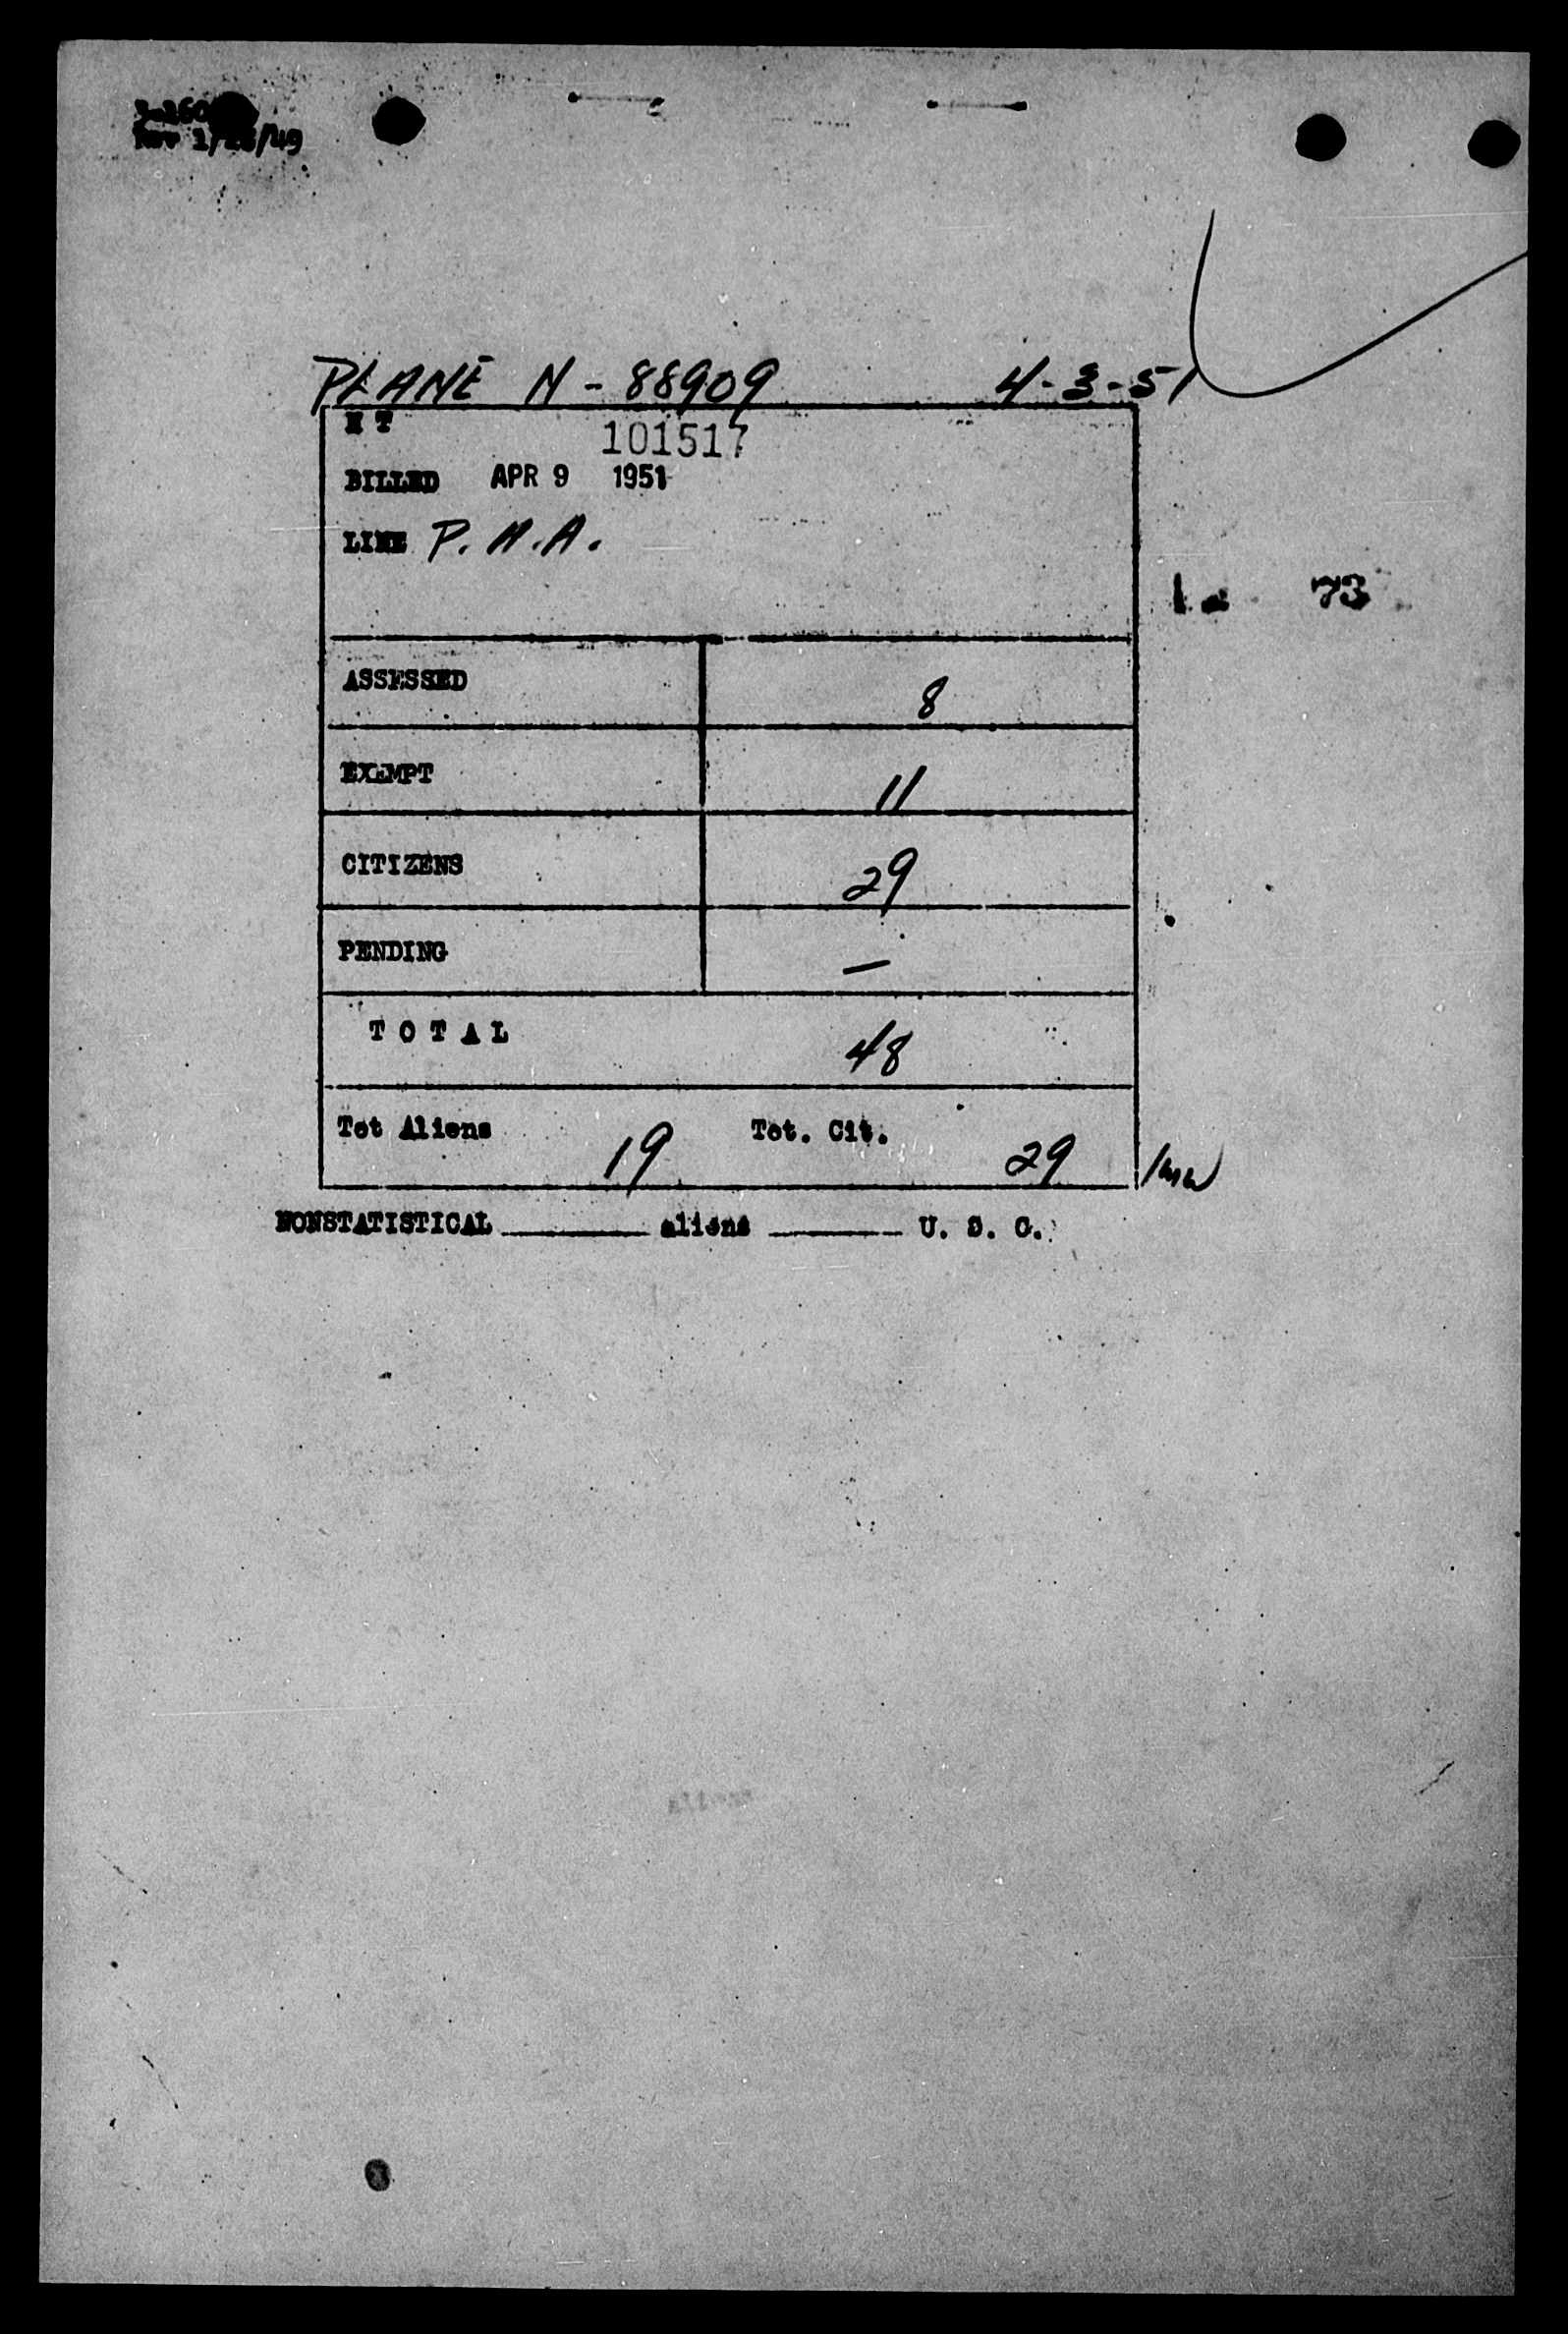 PLANE N-88909 4-3-51
H T 101517
BILLED APR 9 1951
LINE P.A.A.
1 a 73
ASSESSED 8
EXEMPT 11
CITIZENS 29
PENDING —
T O T A L 48
Tot Aliens 19 Tot. Cit. 29
NONSTATISTICAL ______ aliens ______ U. S. C.
aliens